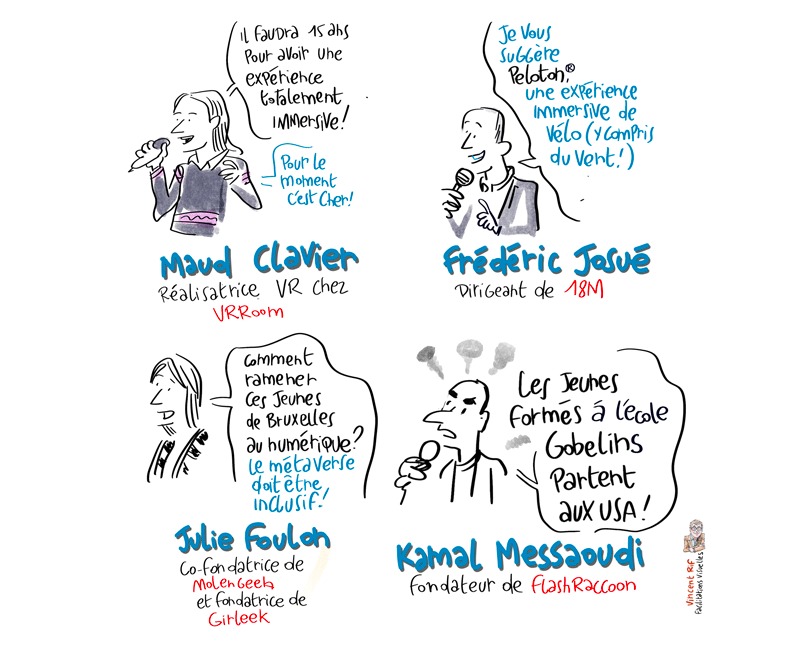 il faudra 15 ans
Pour avoir une
expérience
totalement
immersive!
Pour le
moment
c'est cher!
Maud Clavier
Réalisatrice VR chez
VRRoom
Je vous
suggère
Peloton,®
une expérience
immersive de
vélo (y compris
du vent!)
Frédéric Josué
Dirigeant de 18M
Comment
ramener
ces jeunes
de Bruxelles
au numérique?
le métaverse
doit être
inclusif!
Julie Foulon
Co-fondatrice de
MolenGeek
et fondatrice de
Girleek
Les jeunes
formés à l'école
Gobelins
Partent
aux USA!
Kamal Messaoudi
Fondateur de FlashRaccoon
Vincent Rif
Facilitations Visuelles